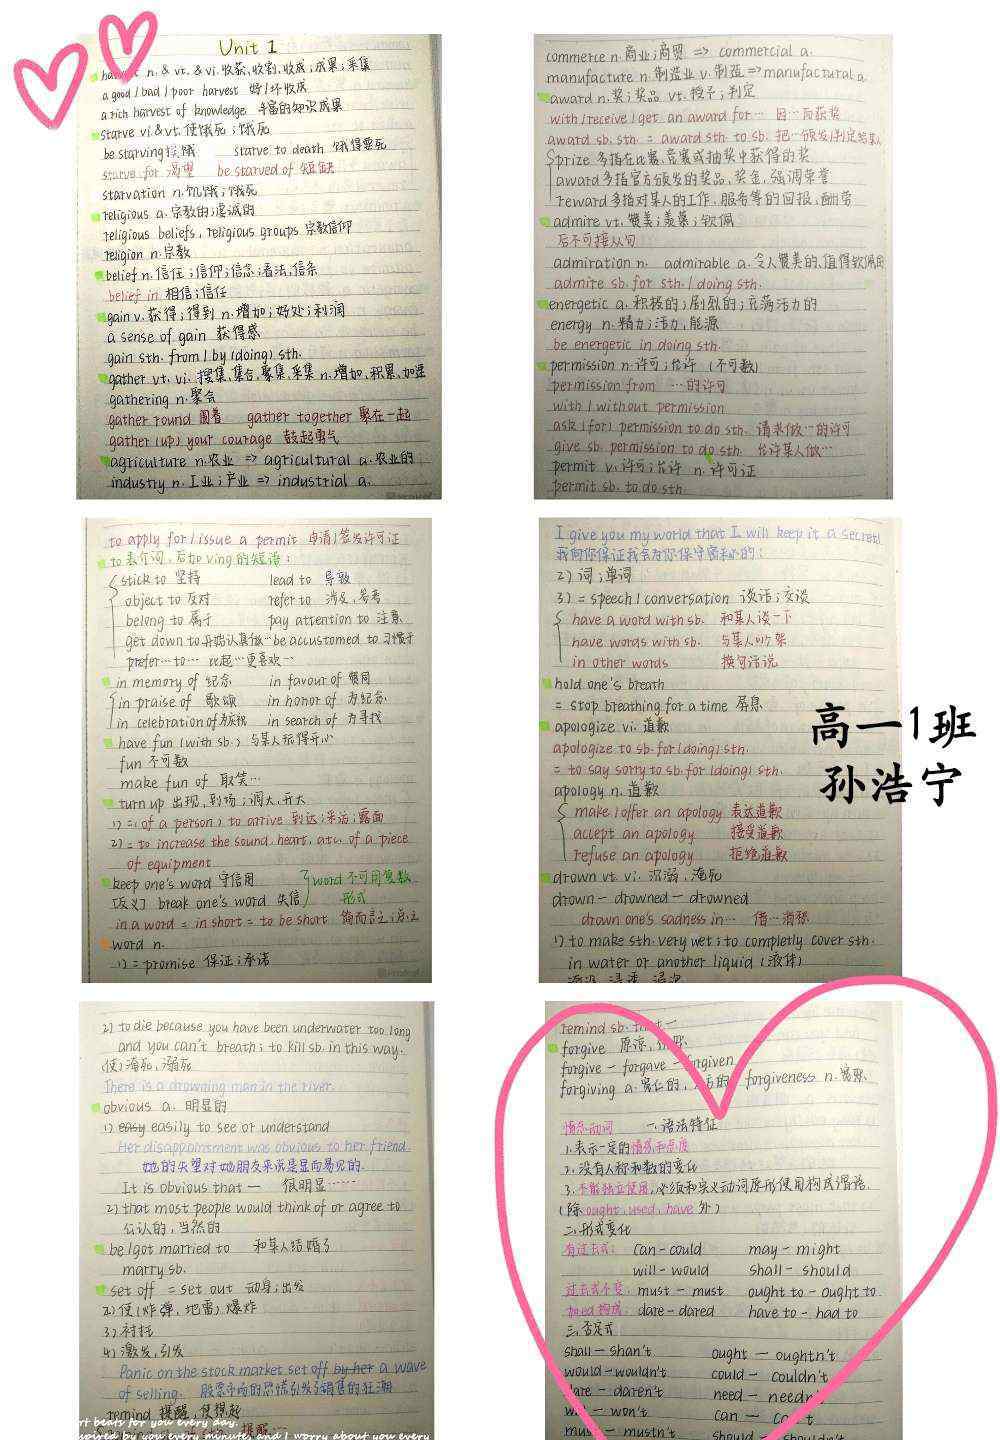 Unit 1
harvest n. & vt. & vi. 收获,收割,收成;成果;采集
a good / bad / poor harvest 好/坏收成
a rich harvest of knowledge 丰富的知识成果
starve vi & vt. 使饿死;饿死
be starving 挨饿 starve to death 饿得要死
starve for 渴望 be starved of 短缺
starvation n. 饥饿;饿死
religious a. 宗教的;虔诚的
religious beliefs, religious groups 宗教信仰
religion n. 宗教
belief n. 信任;信仰;信念;看法,信条
belief in 相信;信任
gain v. 获得;得到 n. 增加;好处;利润
a sense of gain 获得感
gain sth. from / by (doing) sth.
gather vt. vi. 搜集,集合,聚集,采集 n. 增加,积累,加速
gathering n. 聚会
gather round 围着 gather together 聚在一起
gather (up) your courage 鼓起勇气
agriculture n. 农业 => agricultural a. 农业的
industry n. 工业;产业 => industrial a.
commerce n. 商业;商贸 => commercial a.
manufacture n. 制造业 v. 制造 => manufactural a.
award n. 奖;奖品 vt. 授予;判定
with / receive / get an award for… 因…而获奖
award sb. sth. = award sth to sb. 把…颁发/判定给某人
prize 多指在比赛、竞赛或抽奖中获得的奖
award 多指官方颁发的奖品、奖金,强调荣誉
reward 多指对某人的工作,服务等的回报,酬劳
admire vt. 赞美;羡慕;钦佩
后不可接从句
admiration n. admirable a. 令人赞美的、值得钦佩的
admire sb. for sth. / doing sth.
energetic a. 积极的;剧烈的;充满活力的
energy n. 精力;活力,能源
be energetic in doing sth.
permission n. 许可;允许 (不可数)
permission from …的许可
with / without permission
ask (for) permission to do sth. 请求做…的许可
give sb. permission to do sth. 允许某人做…
permit v. 许可;允许 n. 许可证
permit sb. to do sth
to apply for / issue a permit 申请/签发许可证
to 表介词,后加 ving 的短语:
stick to 坚持 lead to 导致
object to 反对 refer to 涉及,参考
belong to 属于 pay attention to 注意
get down to 开始认真做… be accustomed to 习惯于
prefer… to… 比起…更喜欢…
in memory of 纪念 in favour of 赞同
in praise of 歌颂 in honor of 为纪念
in celebration of 为庆祝 in search of 为寻找
have fun (with sb.) 与某人玩得开心
fun 不可数
make fun of 取笑…
turn up 出现,到场;调大,开大
1) = (of a person) to arrive 到达;来临;露面
2) = to increase the sound, heart, etc. of a piece
of equipment
keep one's word 守信用 word 不可用复数
[反义] break one's word 失信 形式
in a word = in short = to be short 简而言之;总之
word n.
1) = promise 保证;承诺
I give you my world that I will keep it a secret!
我向你保证我会为你保守秘密的!
2) 词;单词
3) = speech / conversation 谈话;交谈
have a word with sb. 和某人谈一下
have words with sb. 与某人吵架
in other words 换句话说
hold one's breath
= stop breathing for a time 屏息
apologize vi. 道歉
apologize to sb. for (doing) sth.
= to say sorry to sb. for (doing) sth.
apology n. 道歉
make / offer an apology 表达道歉
accept an apology 接受道歉
refuse an apology 拒绝道歉
drown vt. vi. 沉溺,淹死
drown - drowned - drowned
drown one's sadness in… 借…消愁
1) to make sth. very wet; to completly cover sth.
in water or another liquid (液体)
高一1班
孙浩宁
2) to die because you have been underwater too long
and you can't breath; to kill sb. in this way.
(使)淹死,溺死
There is a drowning man in the river.
obvious a. 明显的
1) easy easily to see or understand
Her disappointment was obvious to her friend.
她的失望对她朋友来说是显而易见的.
It is obvious that — 很明显……
2) that most people would think of or agree to
公认的,当然的
be / got married to 和某人结婚了
marry sb.
set off = set out 动身;出发
2) 使(炸弹,地雷)爆炸
3) 衬托
4) 激发,引发
Panic on the stock market set off by her a wave
of selling. 股票市场的恐慌引发了销售的狂潮
remind 提醒,使想起
rt beats for you every day.
spired by you every minute, and I worry about you every
remind sb. that —
forgive 原谅,
forgive - forgave - forgiven
forgiving a. 宽仁的, forgiveness n. 宽恕.
情态动词 一.语法特征
1. 表示一定的情感和态度
2. 没有人称和数的变化
3. 不能独立使用,必须和实义动词原形使用构成谓语.
(除 ought, used, have 外)
二.形式变化
有过去式: can - could may - might
will - would shall - should
过去式不变: must - must ought to - ought to.
加ed构成: dare - dared have to - had to
三.否定式
shall - shan't ought — oughtn't
would - wouldn't could — couldn't
dare - daren't need - needn't
will - won't can — can't
must - mustn't should - shouldn't